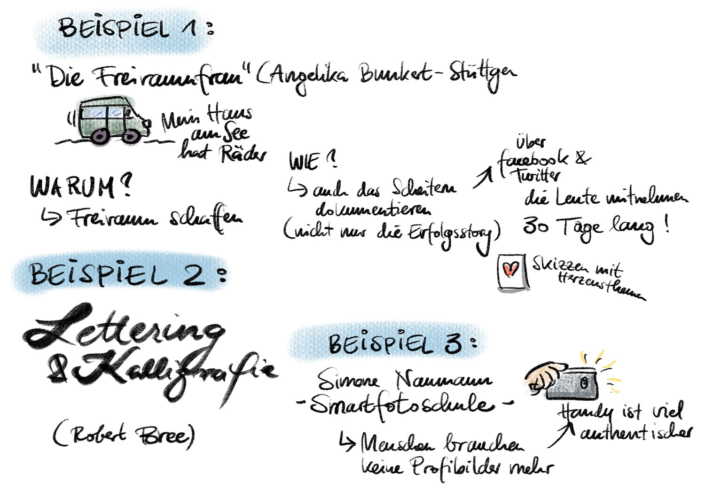 BEISPIEL 1:
"Die Freiraumfrau" (Angelika Bunkert-Stüttgen
Mein Haus
am See
hat Räder
WARUM?
↳ Freiraum schaffen
WIE?
↳ auch das Scheitern
dokumentieren
(nicht nur die Erfolgsstory)
über
facebook &
Twitter
die Leute mitnehmen
30 Tage lang!
Skizzen mit
Herzensthemen
BEISPIEL 2:
Lettering
& Kalligrafie
(Robert Bree)
BEISPIEL 3:
Simone Naumann
- Smartfotoschule -
↳ Menschen brauchen
keine Profibilder mehr
Handy ist viel
authentischer